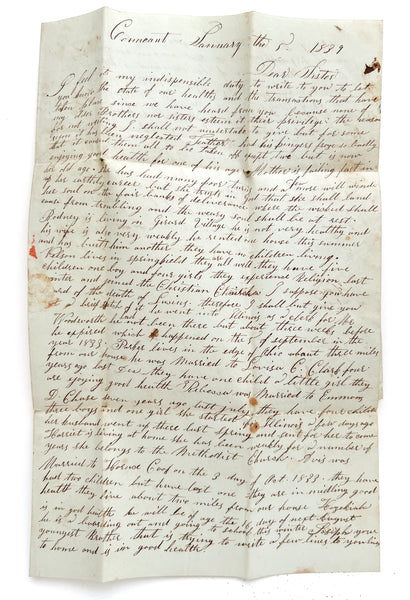 Conneaut January the 5 1839
Dear Sister
I feel it my indispensible duty to write to you to let
you know the state of our health, and the transactions that have
taken place since we have heard from you because none of
my other Brothers nor sisters esteem it their privilege: the reason
for not writing I shall not undertake to give but for some
reason it has been neglected Father had his fingers froze so badly
that it caused them all to be taken off except two but is now
enjoying good health for one of his age Mother is failing fast
of her old age. She has had many floor and Worse will wind
her earthly career but she trusts in God that she shall land
her soul on the fair banks of deliverance where the wicked shall
cease from trembling and the weary soul shall be at rest.
Rodney is living in Girard Village he is not very healthy and
his wife is also very weakly he rented his house this summer
and has built him another they have no children living
Nelson lives in springfield they are all well they have five
children one boy and four girls they experience Religion last
winter and joined the Christian Church I suppose you have
heard of the death of Lucius therefore I shall but give you
a brief of it he went into Illinois as a clerk for Mr
Woodworth he had not been there but about three weeks before
he expired which happened on the 5 of september in the
year 1833 Parke lives in the edge of Ohio about three miles
from our house he was Married to Lovisa C. Clark four
years ago last Dec they have one child a little girl they
are enjoying good health was Married to Emmons
D. Chase seven years ago last july they have four children
three boys and one girl she started for Illinois a few days ago
her husband went up there last spring and sent for her to come
Harriet is living at home she has been weakly for a number of
years she belongs to the Methodist Church. Avis was
Married to Horace Coof on the 3 day of Oct 1833 they have
had two children but have lost one they are in midling good
health they live about two miles from our house Hezekiah
is in good health he will be of age the 16 day of next August
he is boarding out and going to school this winter Joseph your
youngest Brother that is trying to write a few lines to you lives
to home and is in good health